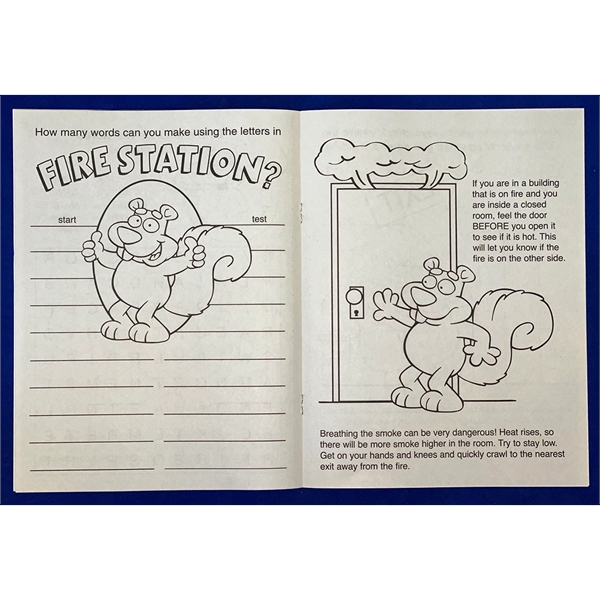 How many words can you make using the letters in
FIRE STATION?
start
test
If you are in a building
that is on fire and you
are inside a closed
room, feel the door
BEFORE you open it
to see if it is hot. This
will let you know if the
fire is on the other side.
Breathing the smoke can be very dangerous! Heat rises, so
there will be more smoke higher in the room. Try to stay low.
Get on your hands and knees and quickly crawl to the nearest
exit away from the fire.